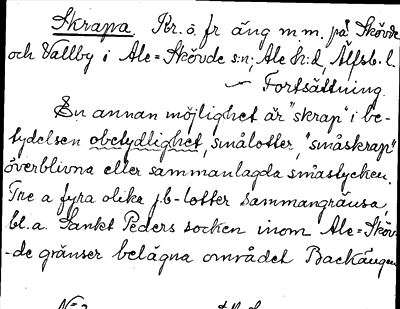 Skrapa. Kr.ö. fr äng m.m. på Skövde
och Vallby i Ale=Skövde s:n; Ale h:d, Älfsb. l.
— Fortsättning.
En annan möjlighet är "skrap" i be-
tydelsen obetydlighet, smålotter, "småskrap"
överblivna eller sammanlagda småstycken.
Tre a fyra olika j.b-lotter sammangränsa,
bl.a. Sankt Peders socken inom Ale=Sköv-
-de gränser belägna området Backängen